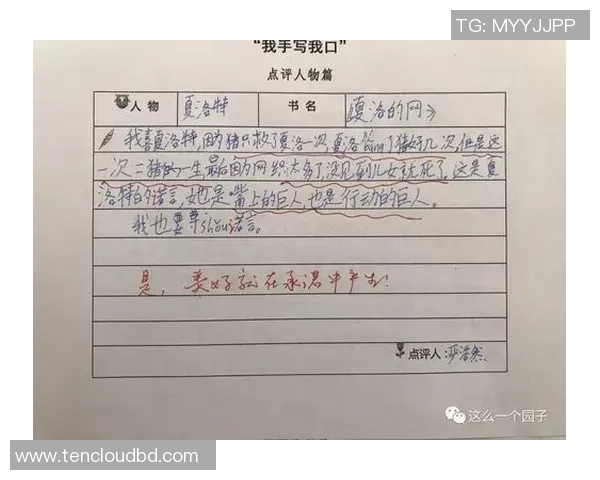 TG: MYYJJPP
“我手写我口”
点评人物篇
人物 夏洛特 书名 《夏洛的网》
我喜夏洛特,因为猪只救了夏洛一次,夏洛bang了猪好几次,但是这
一次二猪的一生最后因为网织太多了,没见到儿女就死了,这是夏
洛特的诺言,她是嘴上的巨人,也是行动的巨人。
我也要尊shou诺言。
是,美好就在承诺中产生!
点评人:
这么一个园子
www.tencloudbd.com